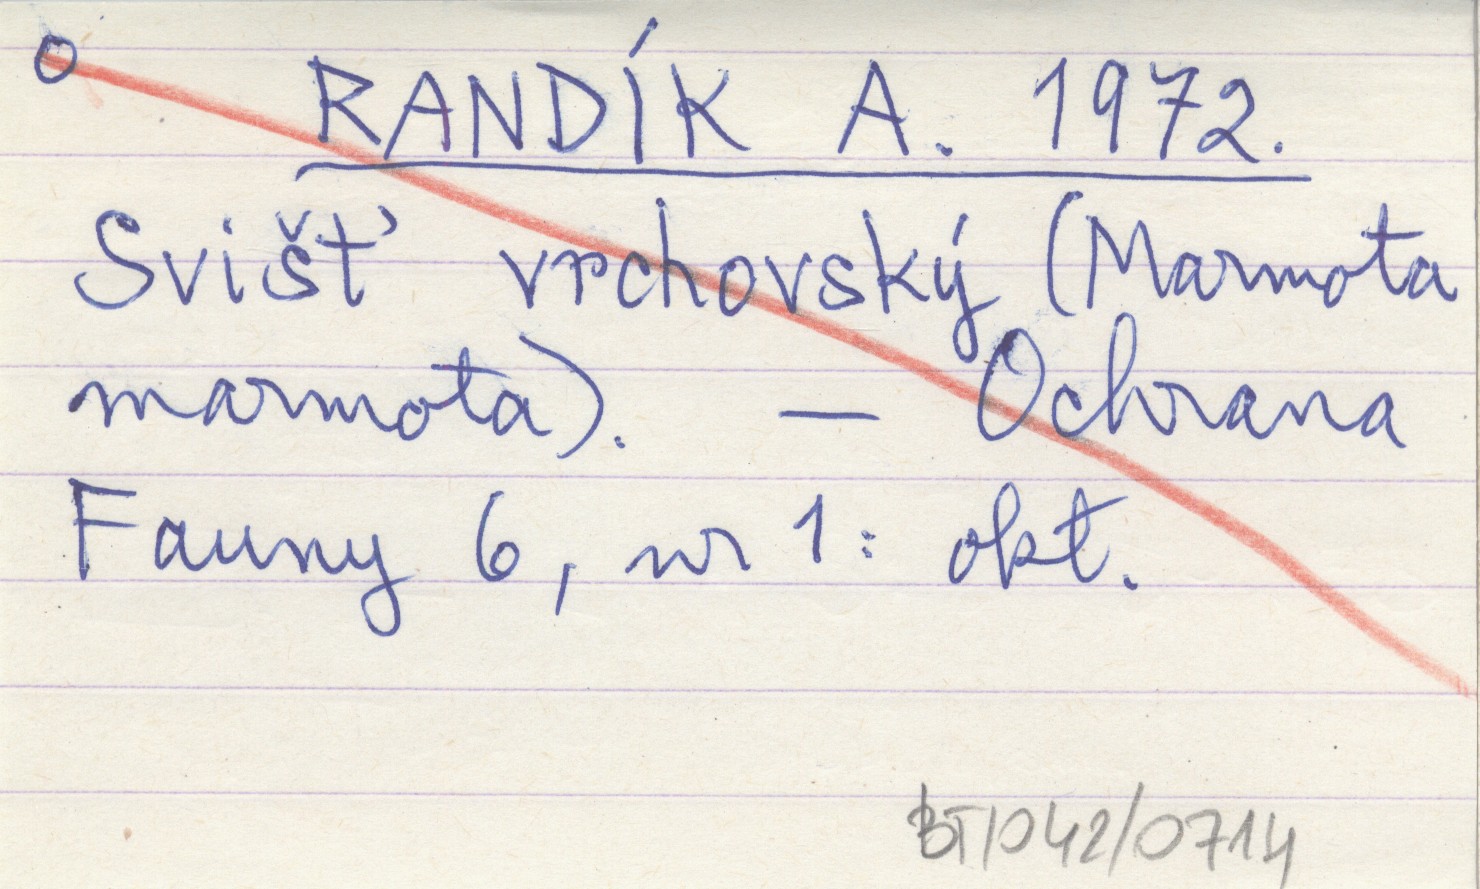 O
RANDÍK A. 1972.
Svišť vrchovský (Marmota
marmota). — Ochrana
Fauny 6, nr 1: okt.
BT/042/0714